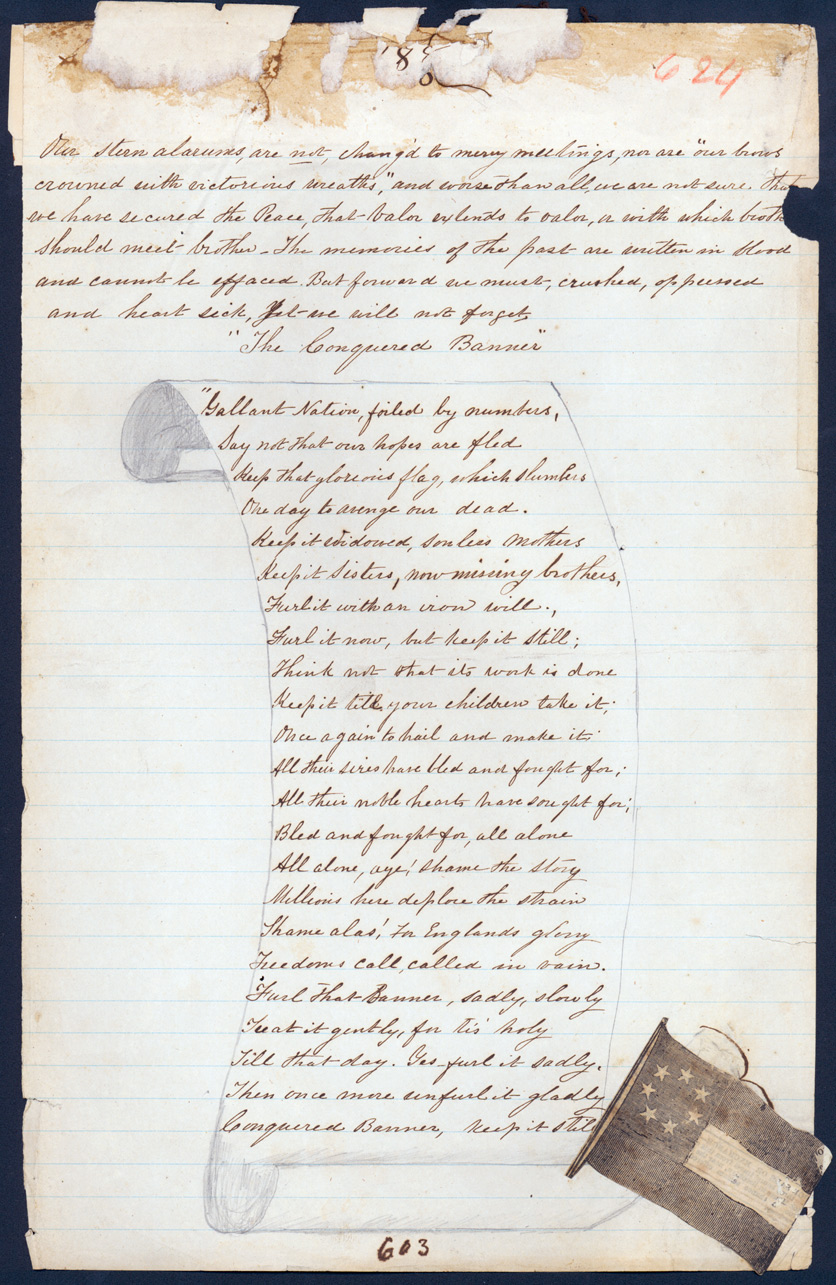 624
Our stern alarums, are not, chang'd to merry meetings, nor are "our brows
crowned with victorious wreaths," and worse than all, we are not sure that
we have secured the Peace, that Valor extends to valor, or with which
should meet brother - The memories of the past are written in blood
and cannot be effaced. But forward we must, crushed, oppressed
and heart sick, Yet we will not forget
"The Conquered Banner"
"Gallant Nation, foiled by numbers,
Say not that our hopes are fled
Keep that glorious flag, which slumbers
One day to avenge our dead.
Keep it widowed, sonless mothers
Keep it Sisters, now missing brothers,
Furl it with an iron will.,
Furl it now, but keep it still;
Think not that its work is done
Keep it till your children take it;
Once again to hail and make it
All their sires have bled and fought for;
All their noble hearts have sought for;
Bled and fought for, all alone
All alone, aye! shame the story
Millions here deplore the strain
Shame alas! For Englands glory
Freedoms call, called in vain.
"Furl that Banner, sadly, slowly
Treat it gently, for tis' holy
Till that day. Yes-furl it sadly.
Then once more unfurl it gladly
Conquered Banner, keep it still
603